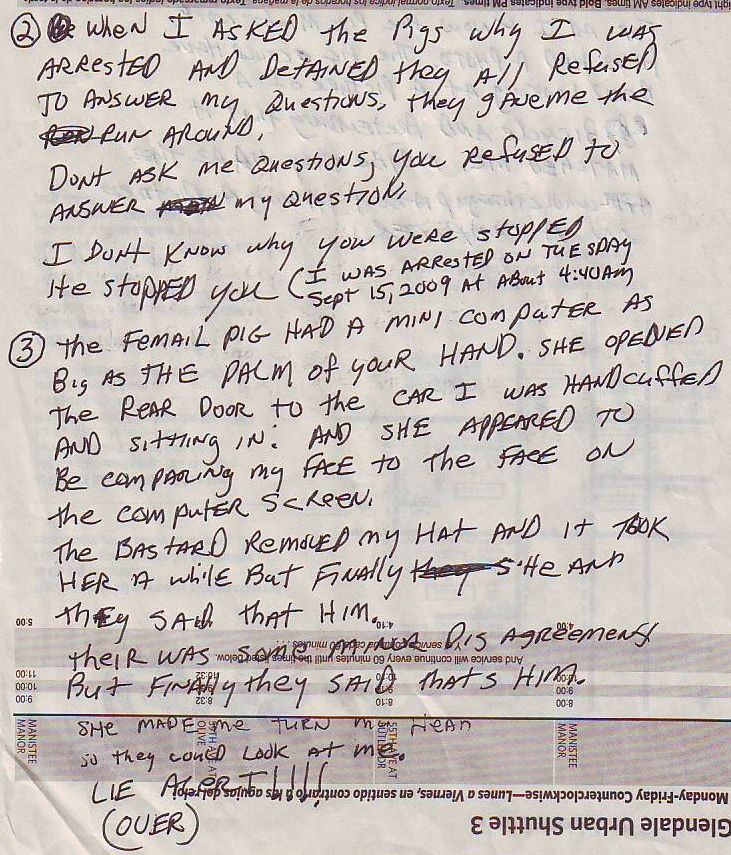 light type indicates AM times. Bold type indicates PM times. Texto normal indica los horarios de la mañana. Texto
② WHEN I ASKED the Pigs why I WAS
ARRESTED AND DETAINED they All Refused
TO ANSWER my Questions, they gave me the
RUN AROUND.
DONT ASK me Questions, you Refused to
ANSWER my Question.
I DONT KNOW why you were stopped
He stopped you (I WAS ARRESTED ON TUESDAY
Sept 15, 2009 At About 4:40AM
③ the FEMAIL PIG HAD A MINI COMPUTER AS
Big AS THE PALM of your HAND. SHE OPENED
the REAR DOOR to the CAR I WAS HANDCUFFED
AND SITTING IN: AND SHE APPEARED TO
Be COMPARING my FACE to the FACE ON
the COMPUTER SCREEN.
The BASTARD Removed my HAT AND it TOOK
HER A while But FINAlly SHE AND
they SAID that HIM.
5:00
4:10
4:00
theIR WAS SOME DISAGREEMENT
And service will continue every 60 minutes until the times listed below.
But FINAlly they SAID thats HIM.
11:00
10:00
9:00
8:32
8:10
10:00
9:00
8:00
SHE MADE me TURN my HEAD
so they could Look at me.
MANISTEE
MANOR
OLIVE
MANISTEE
MANOR
LIE ALERT!!!!
Monday-Friday Counterclockwise—Lunes a Viernes, en sentido contrario a las agujas del reloj
(OVER)
Glendale Urban Shuttle 3